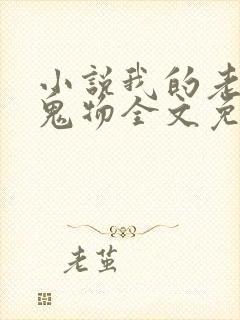 小说我的老
鬼物全文免
老茧